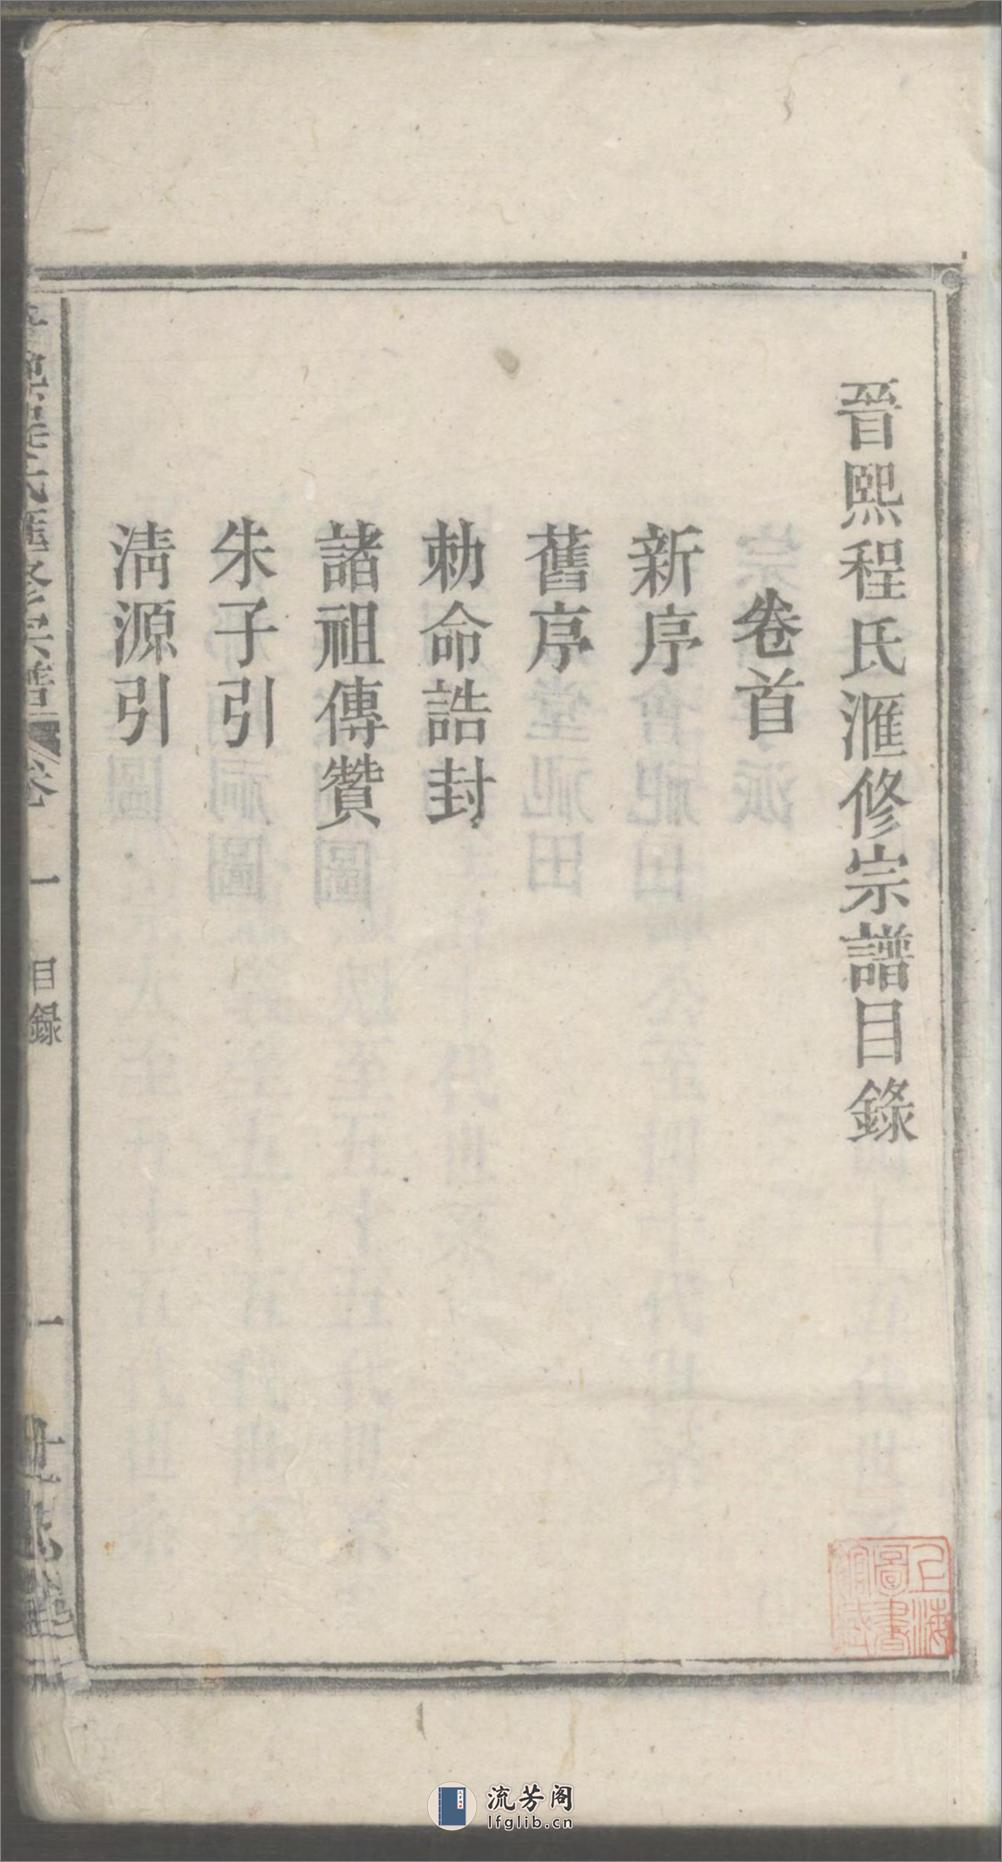 晉熙程氏滙修宗譜目錄
卷首
新序
舊序
勅命誥封
諸祖傳贊
朱子引
淸源引
卷一 目錄
一
上海圖書館藏
流芳阁
lfglib.cn